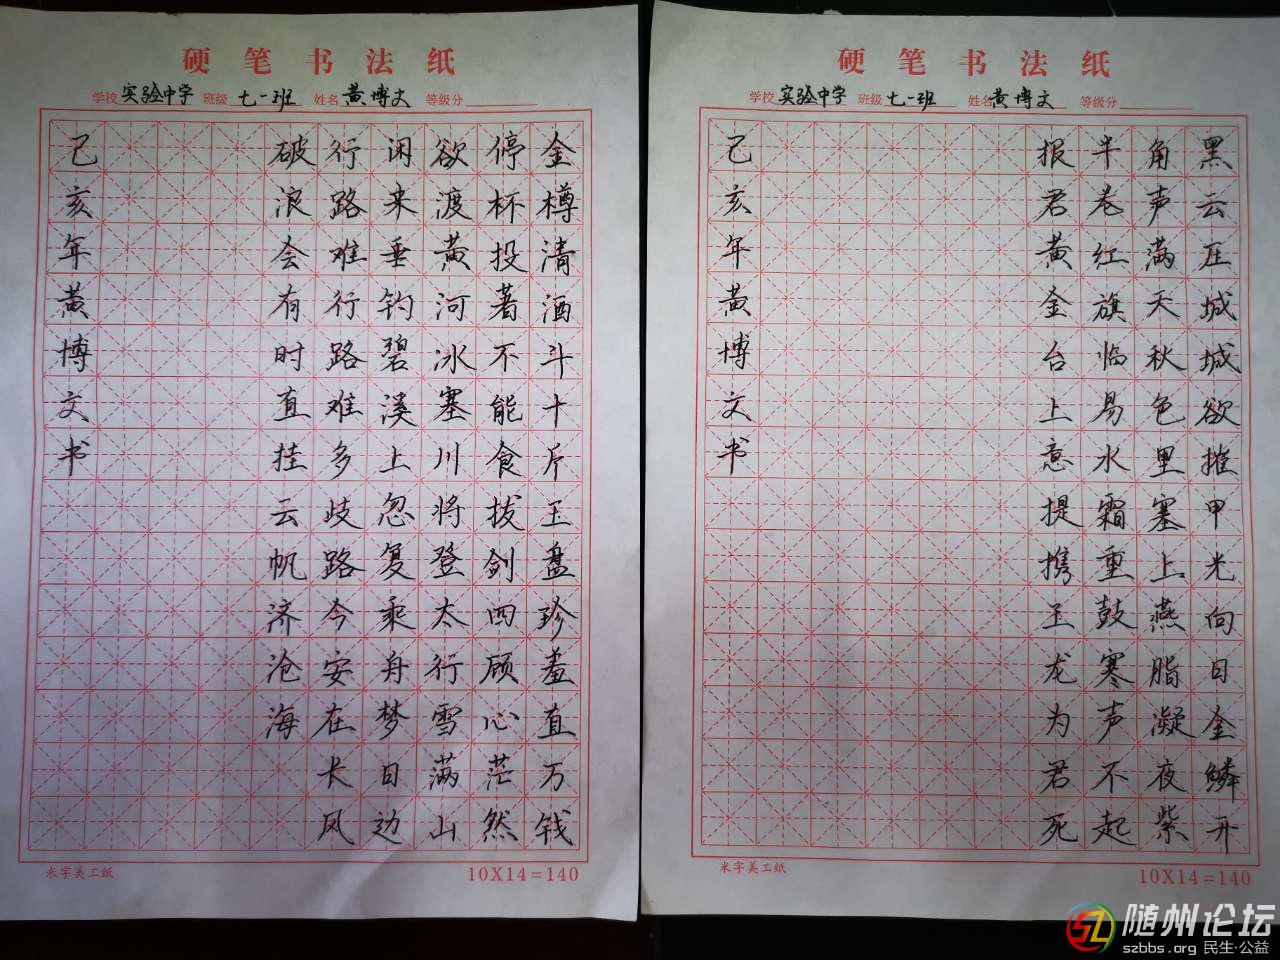 硬笔书法纸
学校 实验中学 班级 七一班 姓名 黄博文 等级分
金樽清酒斗十斤玉盘珍羞直万钱
停杯投著不能食拔剑四顾心茫然
欲渡黄河冰塞川将登太行雪满山
闲来垂钓碧溪上忽复乘舟梦日边
行路难行路难多歧路今安在长风
破浪会有时直挂云帆济沧海
己亥年黄博文书
米字美工纸
10X14=140
硬笔书法纸
学校 实验中学 班级 七一班 姓名 黄博文 等级分
黑云压城城欲摧甲光向日金鳞开
角声满天秋色里塞上燕脂凝夜紫
半卷红旗临易水霜重鼓寒声不起
报君黄金台上意提携玉龙为君死
己亥年黄博文书
米字美工纸
10X14=140
随州论坛
szbbs.org 民生·公益